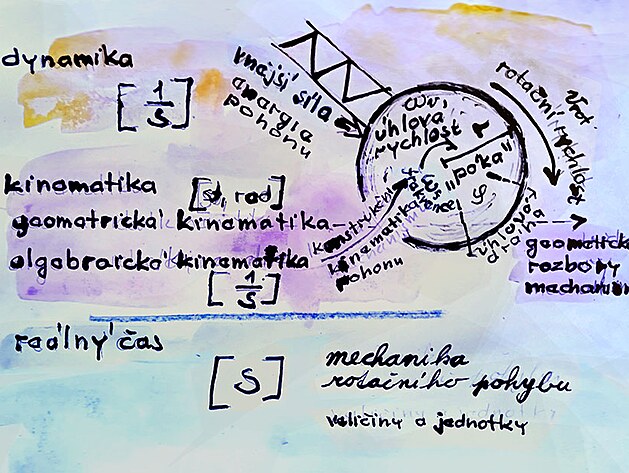 dynamika
[1/s]
vnější síla
energie
pohonu
ω,
úhlová
rychlost
r
"páka"
φ
rotační rychlost
úhlová
dráha
kinematika [st, rad]
geometrická kinematika
algebraická kinematika
[1/s]
konstrukční
kinematika
pohonu
rozbory
reálný čas
[s]
mechanika
rotačního pohybu
veličiny a jednotky